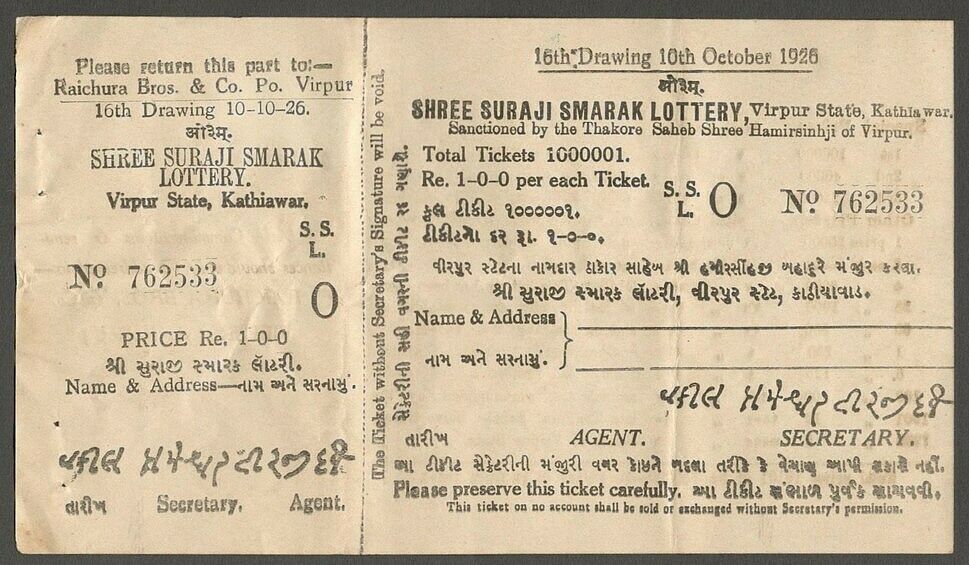 Please return this part to:—
Raichura Bros. & Co. Po. Virpur
16th Drawing 10-10-26.
ओ३म्.
SHREE SURAJI SMARAK
LOTTERY.
Virpur State, Kathiawar.
S. S.
L.
Nº 762533
O
PRICE Re. 1-0-0
શ્રી સુરાજી સ્મારક લૅાટરી.
Name & Address—નામ અને સરનામું.
તારીખ Secretary. Agent.
The Ticket without Secretary's Signature will be void.
સેક્રેટરીની સહી વગરની ટીકીટ રદ ગણાશે.
16th Drawing 10th October 1926
ओ३म्.
SHREE SURAJI SMARAK LOTTERY, Virpur State, Kathiawar.
Sanctioned by the Thakore Saheb Shree Hamirsinhji of Virpur.
Total Tickets 1000001.
Re. 1-0-0 per each Ticket.
S. S.
L. O Nº 762533
કુલ ટીકીટ ૧૦૦૦૦૦૧.
ટીકીટના દર રૂા. ૧-૦-૦.
વીરપુર સ્ટેટના નામદાર ઠાકોર સાહેબ શ્રી હમીરસીંહજી બહાદુરે મંજુર કરેલા.
શ્રી સુરાજી સ્મારક લૅાટરી, વીરપુર સ્ટેટ, કાઠીયાવાડ.
Name & Address
નામ અને સરનામું.
તારીખ AGENT. SECRETARY.
આ ટીકીટ સેક્રેટરીની મંજુરી વગર કોઇને બદલા તરીકે કે વેચાણ આપી શકાશે નહીં.
Please preserve this ticket carefully. આ ટીકીટ સંભાળ પુર્વક સાચવવી.
This ticket on no account shall be sold or exchanged without Secretary's permission.